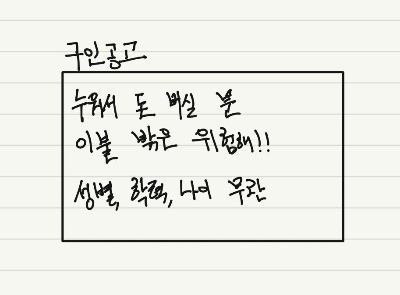 구인공고
누워서 돈 버실 분
이불 밖은 위험해!!
성별, 학력, 나이 무관